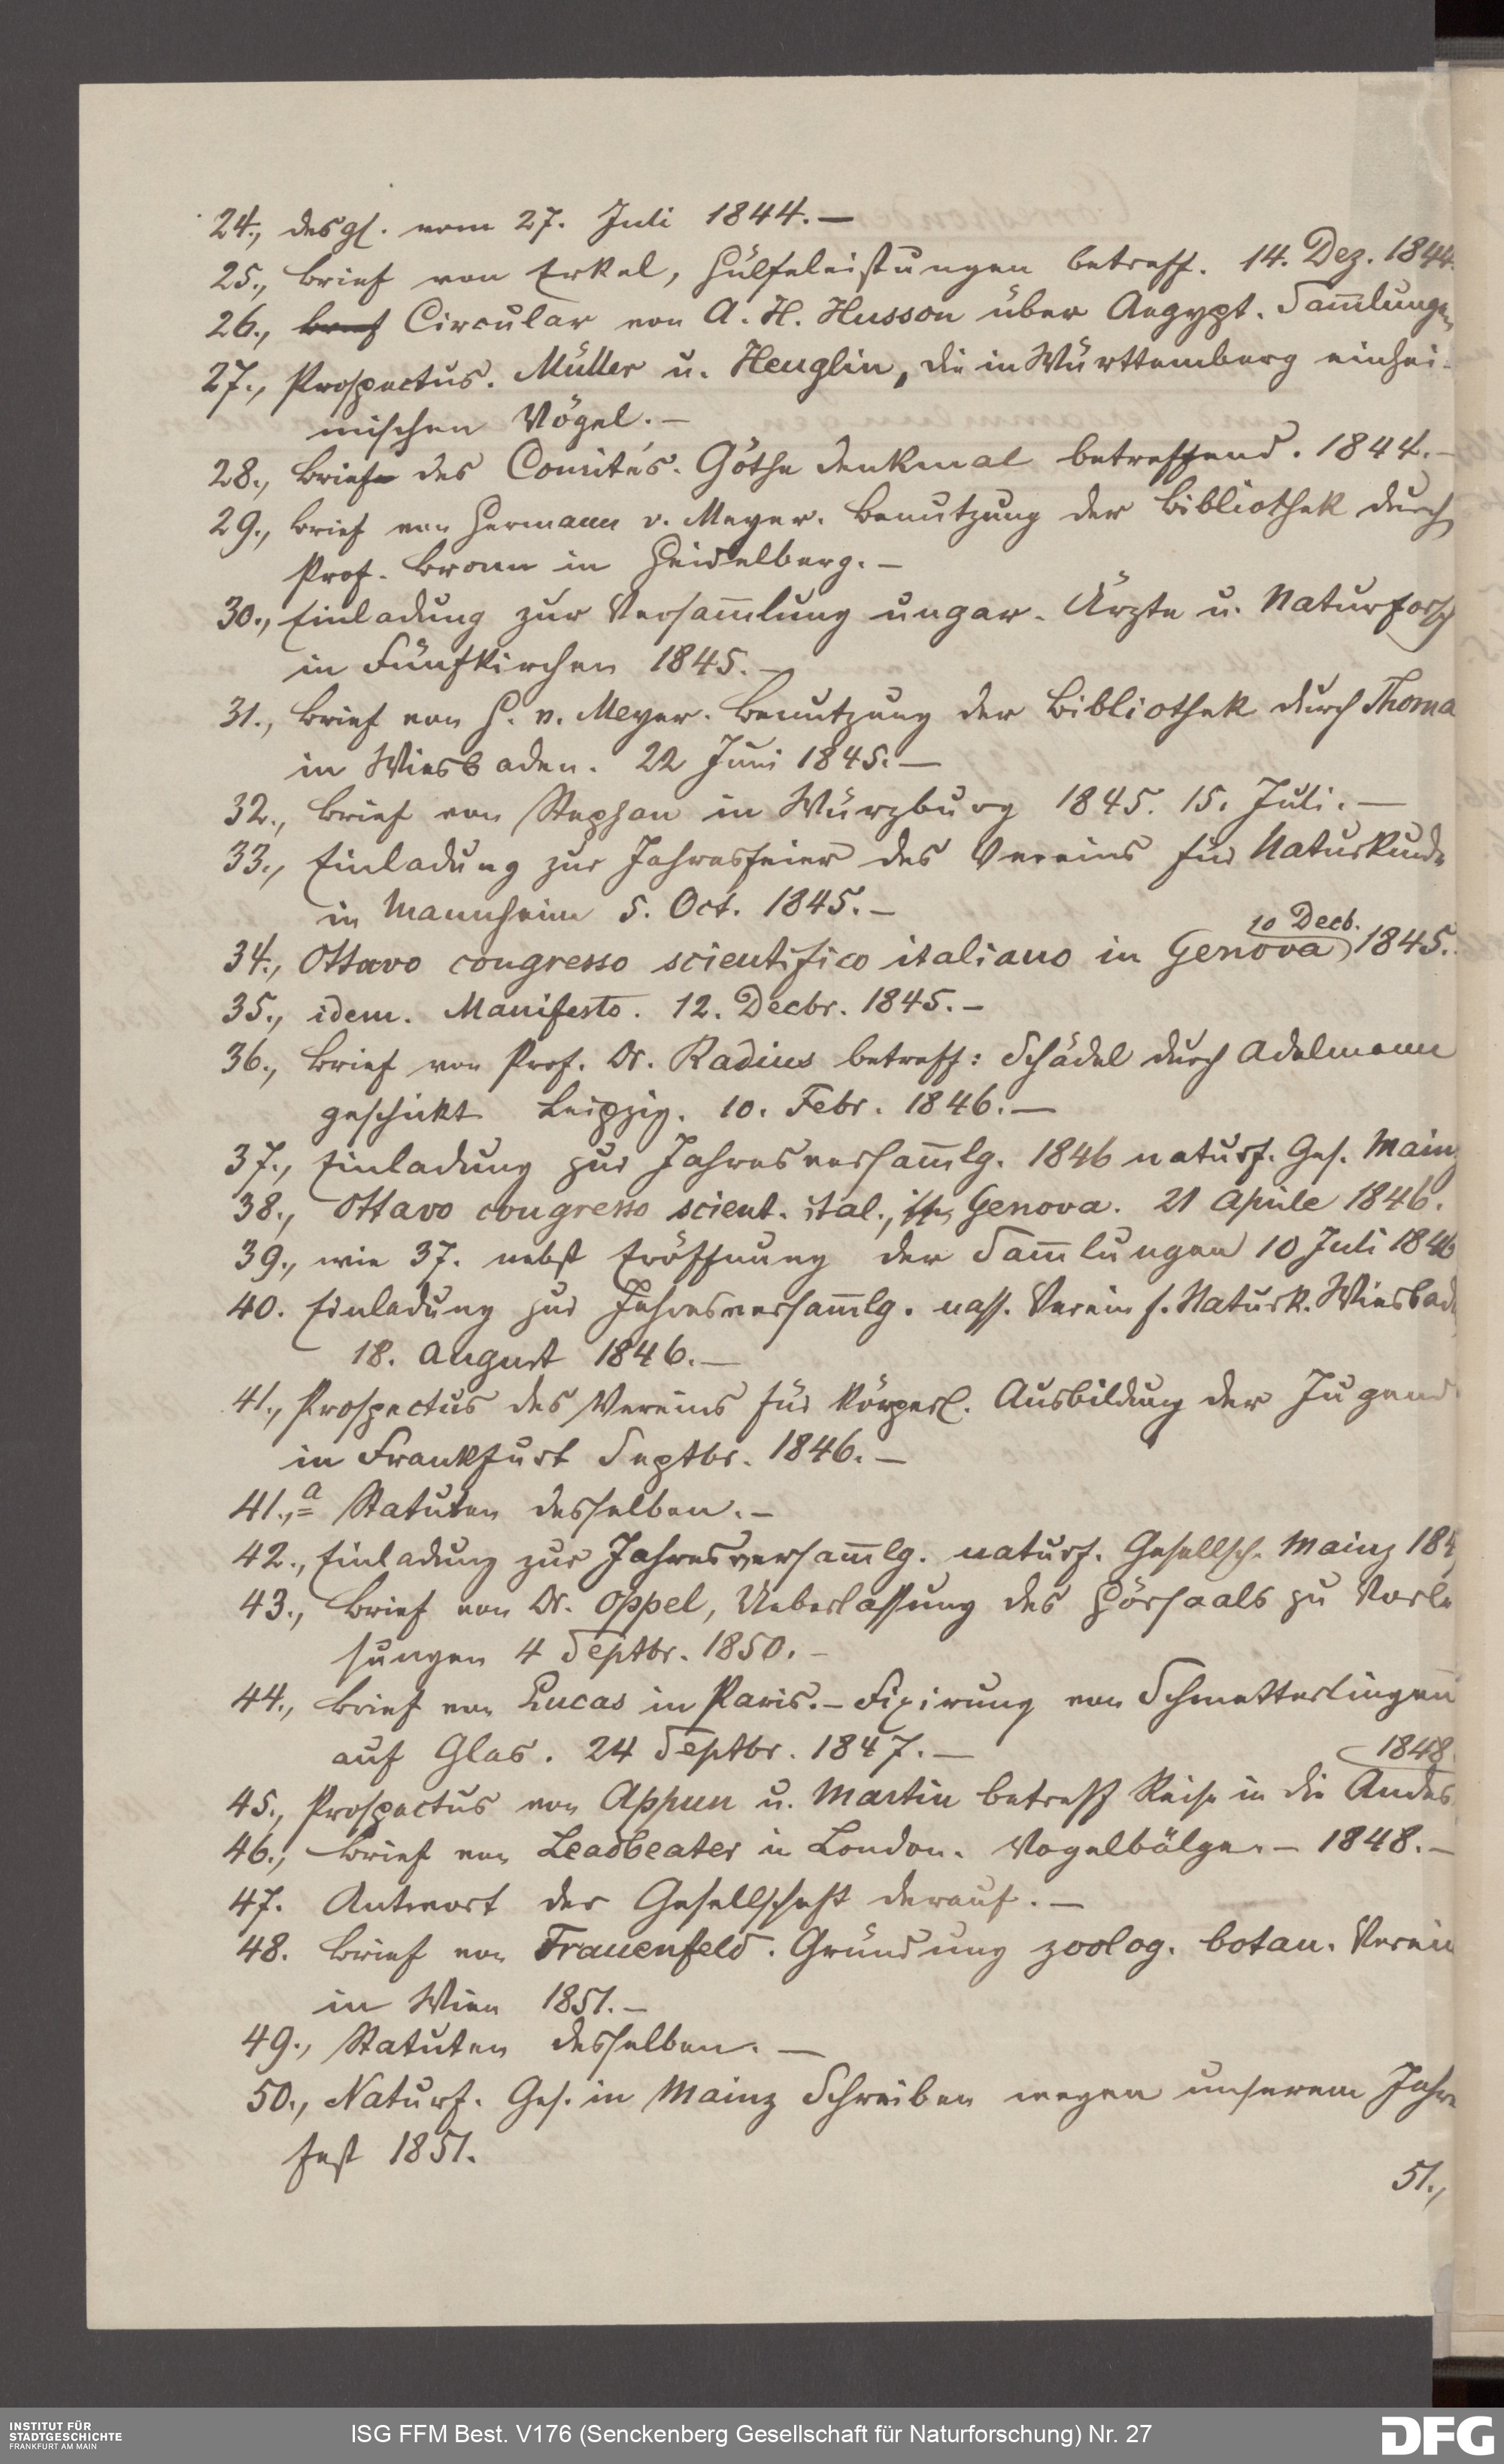 24., desgl. vom 27. Juli 1844.—
25., Brief von Erkel, Hülfeleistungen betreff. 14. Dez. 1844.
26., Brief Circular von A. H. Husson über Aegypt. Sam̅lungen
27., Prospectus. Müller u. Heuglin, die in Württemberg einhei-
mischen Vögel.—
28., Brief des Comités. Göthe denkmal betreffend. 1844.—
29., Brief von Hermann v. Meyer. Benutzung der Bibliothek durch
Prof. Bronn in Heidelberg.—
30., Einladung zur Versam̅lung ungar. Ärzte u. Naturforsch
in Fünfkirchen 1845.—
31., Brief von H. v. Meyer. Benutzung der Bibliothek durch Thomä
in Wiesbaden. 22 Juni 1845.—
32., Brief von Stephan in Würzburg 1845. 15. Juli.—
33., Einladung zur Jahresfeier des Vereins für Naturkunde
in Mannheim 5. Oct. 1845.—
10 Decb.
34., Ottavo congresso scientifico italiano in Genova 1845.
35., idem. Manifesto. 12. Decbr. 1845.—
36., Brief von Prof. Dr. Radius betreff: Schädel durch Adelmann
geschickt Leipzig. 10. Febr. 1846.—
37., Einladung zur Jahresversam̅lg. 1846 naturf. Ges. Mainz
38., Ottavo congresso scient. ital., in Genova. 21 Aprile 1846.
39., wie 37. nebst Eröffnung der Sam̅lungen 10 Juli 1846
40. Einladung zur Jahresversam̅lg. nass. Verein f. Naturk. Wiesbad
18. August 1846.—
41., Prospectus des Vereins für körperl. Ausbildung der Jugend
in Frankfurt Septbr. 1846.—
41.,a Statuten desselben.—
42., Einladung zur Jahresversam̅lg. naturf. Gesellsch. Mainz 184
43., Brief von Dr. Oppel, Ueberlassung des Hörsaals zu Vorle
sungen 4 Septbr. 1850.—
44., Brief von Lucas in Paris.— Fixirung von Schmetterlingen
auf Glas. 24 Septbr. 1847.—
1848.
45., Prospectus von Appun u. Martin betreff Reise in die Andes
46., Brief von Leadbeater in London. Vogelbälge.— 1848.—
47. Antwort der Gesellschaft darauf.—
48. Brief von Frauenfeld. Gründung zoolog. botan. Verein
in Wien 1851.—
49., Statuten desselben.—
50., Naturf. Ges. in Mainz Schreiben wegen unserem Jahre
fest 1851.
51.,
INSTITUT FÜR
STADTGESCHICHTE
FRANKFURT AM MAIN
ISG FFM Best. V176 (Senckenberg Gesellschaft für Naturforschung) Nr. 27
DFG